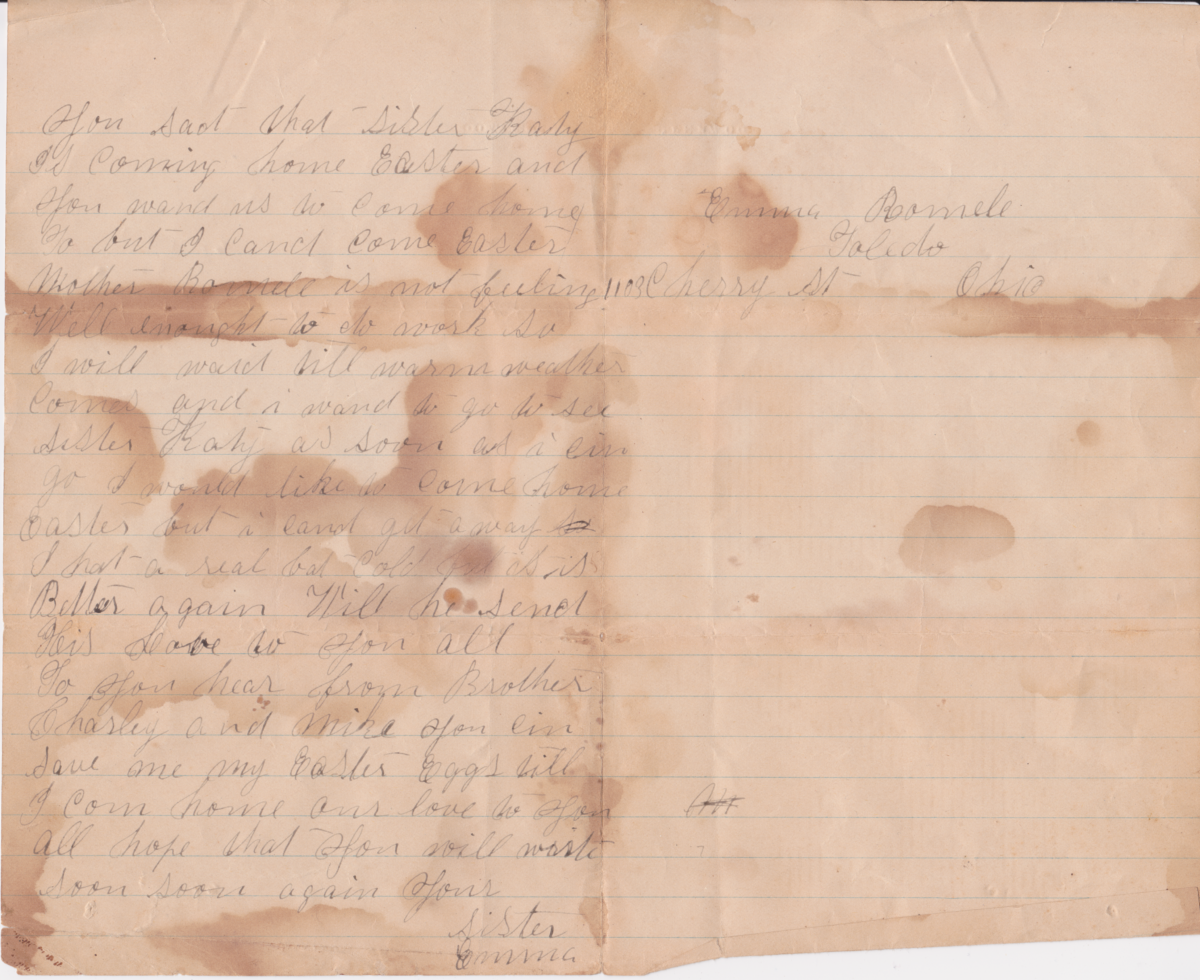 You sact that sister Katy
Is Coming home Easter and
You wand us to come home
To but I cand come Easter
Mother Romele is not feeling
Well enought to do work so
I will waid till warm weather
Comes and i wand to go to see
sister Katy as soon as i cin
go I would like to come home
Easter but i cand get away
I hat a real bat Cold but it is
Better again Will he send
His Love to You all
To You hear from Brother
Charley and Mike You cin
save me my Easter Eggs till
I com home our love to You
all hope that You will write
soon soon again Your
sister
Emma
Emma Romele
Toledo
1103 Cherry st Ohio